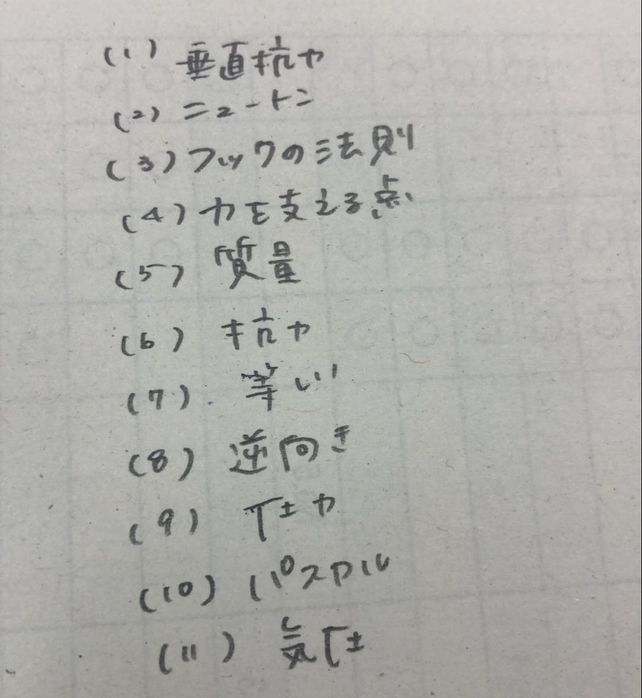 (1) 垂直抗力
(2) ニュートン
(3) フックの法則
(4) 力を支える点
(5) 質量
(6) 抗力
(7) 等しい
(8) 逆向き
(9) 圧力
(10) パスカル
(11) 気圧